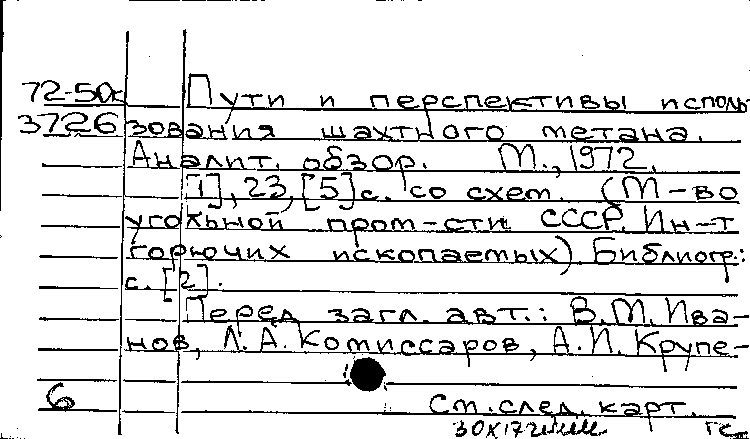 72-50к Пути и перспективы исполь
3726 зования шахтного метана.
Аналит. обзор. М., 1972.
[1], 23, [5] с. со схем. (М-во
угольной пром-сти СССР. Ин-т
горючих ископаемых). Библиогр.:
с. [2].
Перед загл. авт.: В.М. Ива-
нов, Л.А. Комиссаров, А.И. Крупе-
6 См. след. карт.
30X172 гс